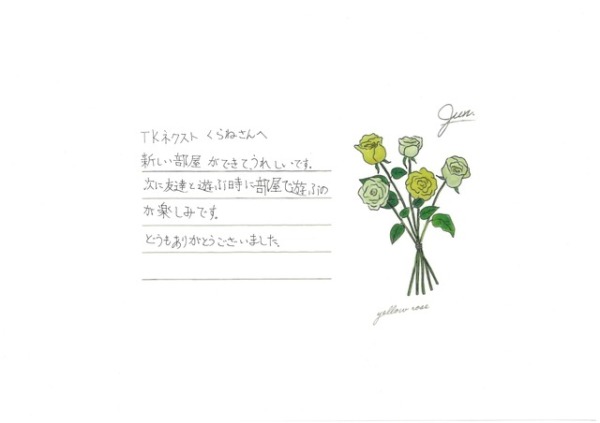 TKネクスト くらねさんへ
新しい部屋ができて、うれしいです。
次に友達と遊ぶ時に部屋で遊ぶの
が楽しみです。
どうもありがとうございました。
Jun.
yellow rose